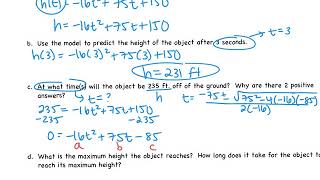 h(t) = -16t² + 75t + 150
h = -16t² + 75t + 150
b. Use the model to predict the height of the object after 3 seconds.
t = 3
h(3) = -16(3)² + 75(3) + 150
h = 231 ft
c. At what time(s) will the object be 235 ft. off of the ground? Why are there 2 positive answers?
t = ?
h
235 = -16t² + 75t + 150
-235 -235
0 = -16t² + 75t - 85
a b c
t = -75 ± √75² - 4(-16)(-85)
2(-16)
d. What is the maximum height the object reaches? How long does it take for the object to reach its maximum height?